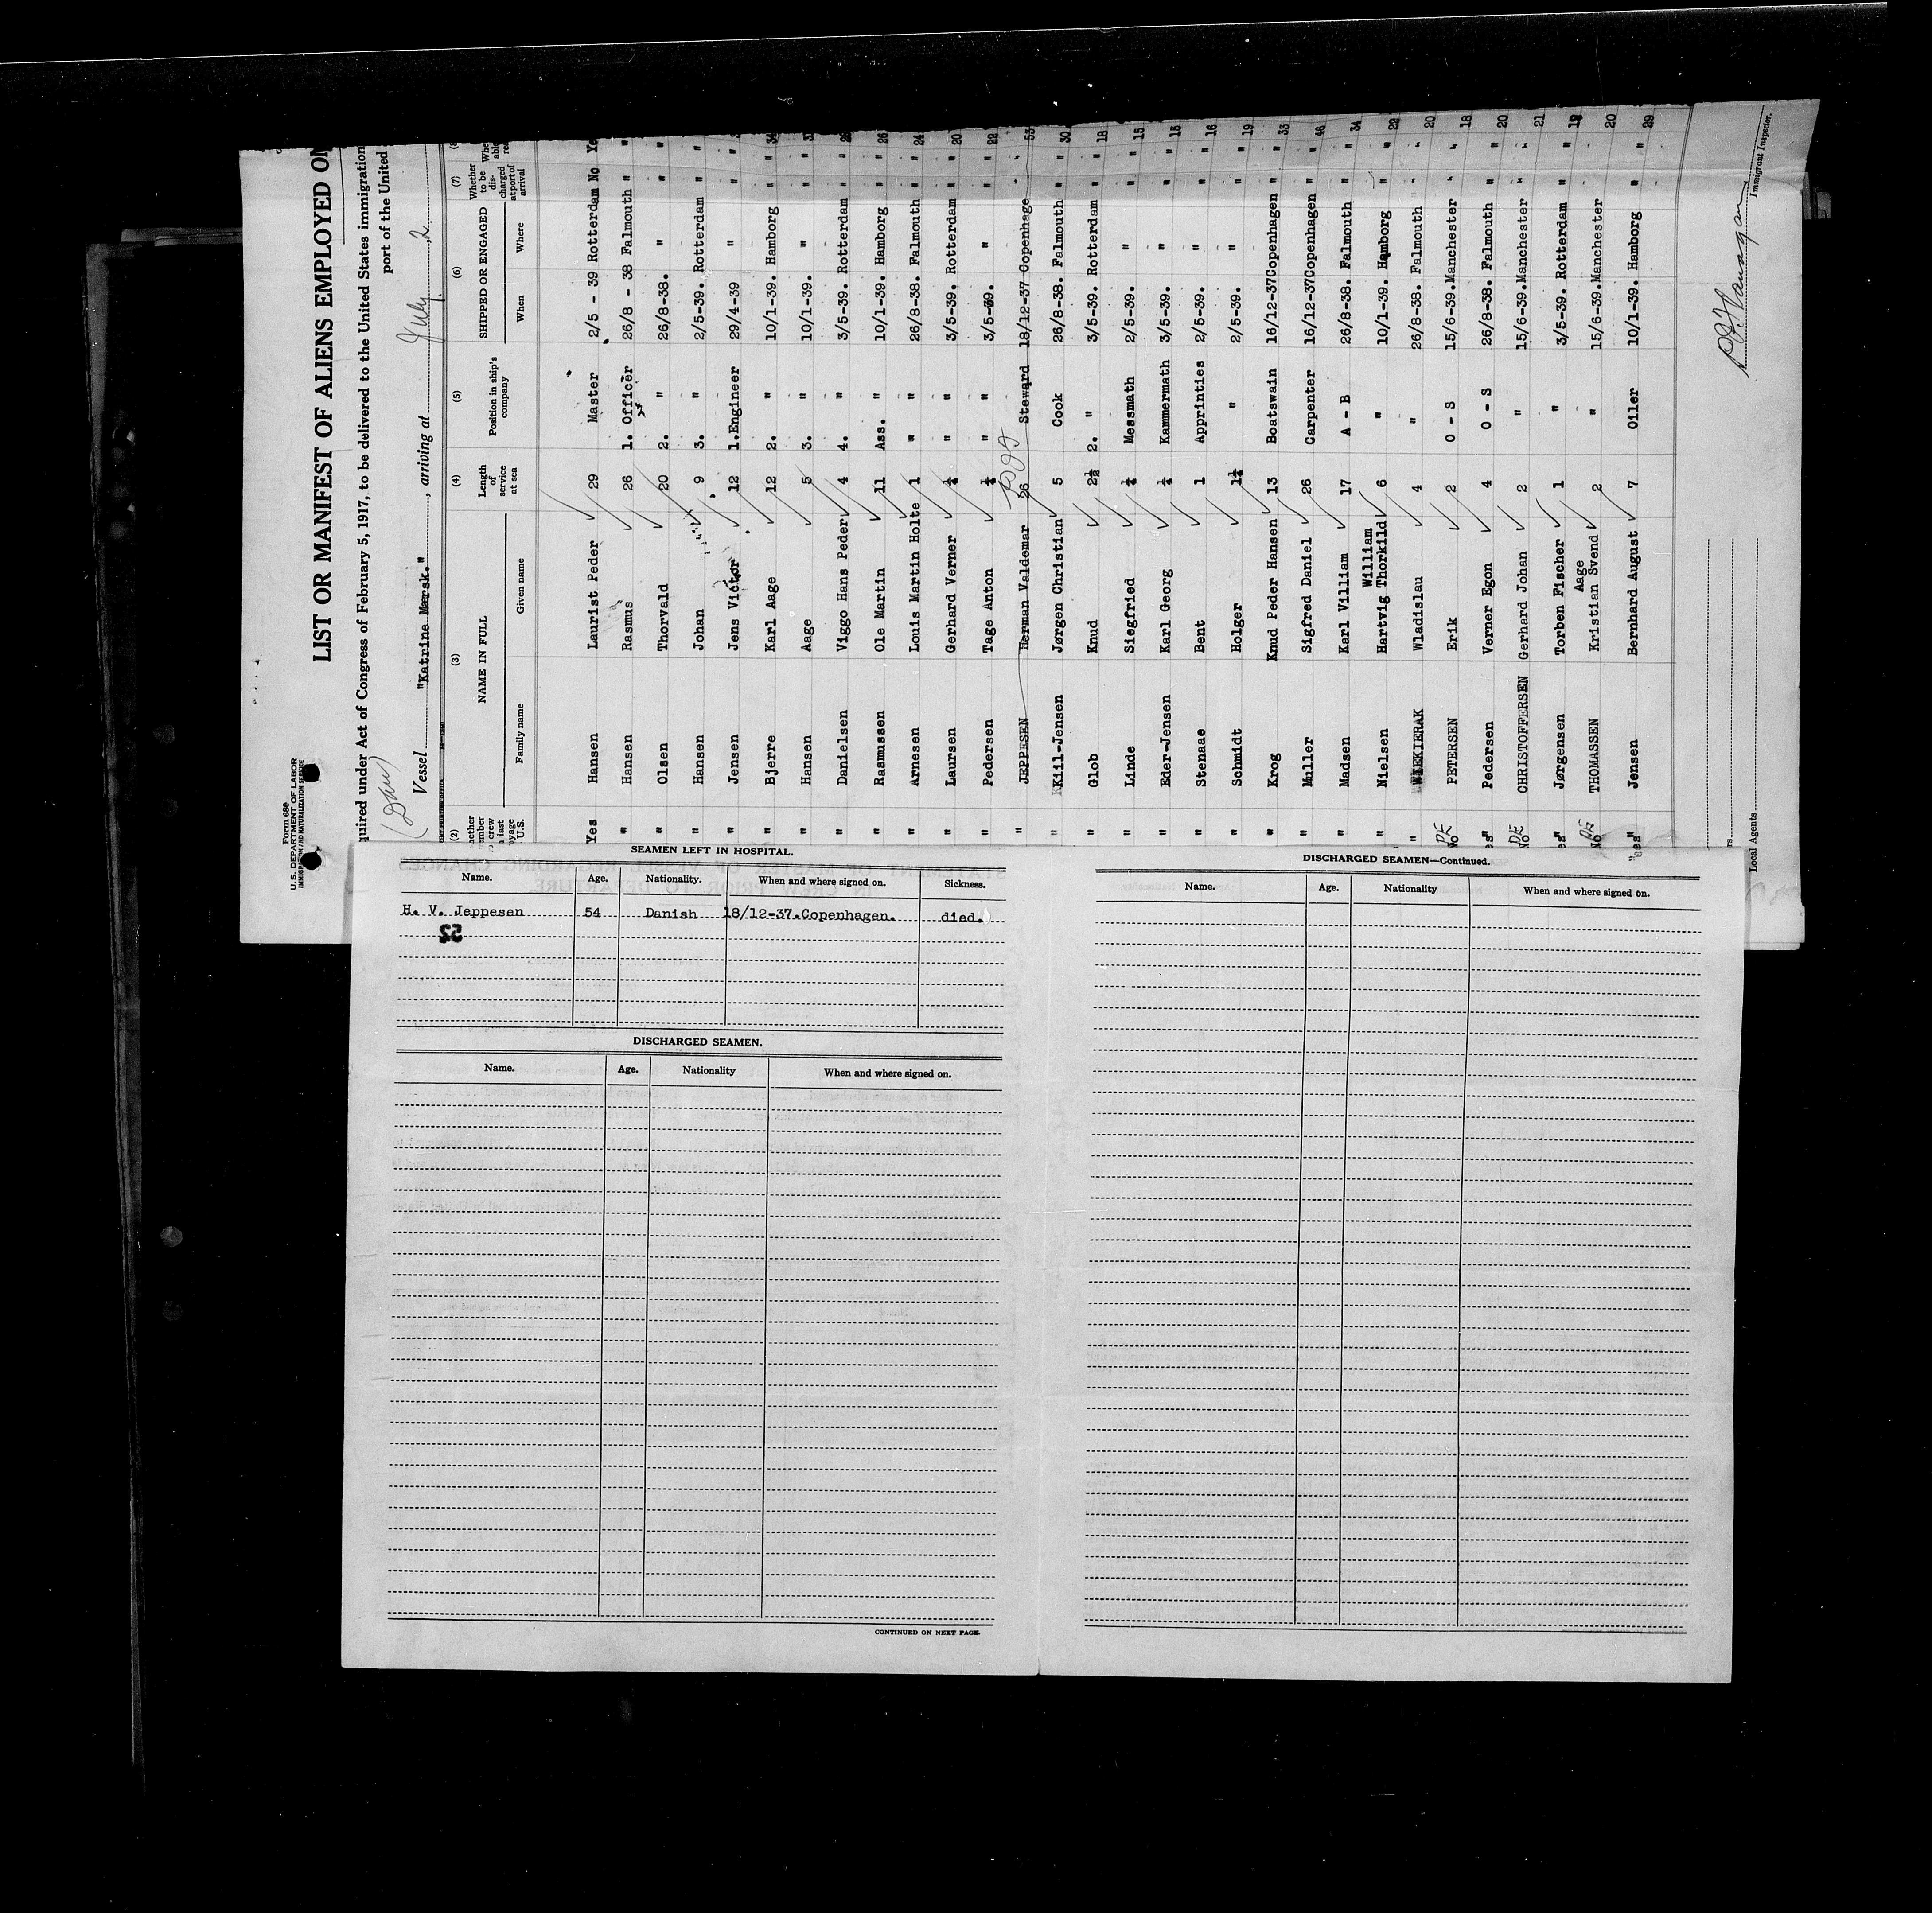 Form 680
U. S. DEPARTMENT OF LABOR
IMMIGRATION AND NATURALIZATION SERVICE
LIST OR MANIFEST OF ALIENS EMPLOYED ON
quired under Act of Congress of February 5, 1917, to be delivered to the United States immigration
port of the United
(Dan)
Vessel "Katrine Mærsk.", arriving at July 2
(2) (3) (4) (5) (6) (7)
NAME IN FULL Length of service at sea Position in ship's company SHIPPED OR ENGAGED Whether to be discharged at port of arrival
Family name Given name When Where
Yes Hansen Laurist Peder 29 Master 2/5 - 39 Rotterdam No Ye
" Hansen Rasmus 26 1. Officer 26/8 - 38 Falmouth " "
" Olsen Thorvald 20 2. " 26/8-38. " " "
" Hansen Johan 9 3. " 2/5-39. Rotterdam " "
" Jensen Jens Victor 12 1.Engineer 29/4-39 " " "
" Bjerre Karl Aage 12 2. " 10/1-39. Hamborg " " 34
" Hansen Aage 5 3. " 10/1-39. " " "
" Danielsen Viggo Hans Peder 4 4. " 3/5-39. Rotterdam " "
" Rasmussen Ole Martin 11 Ass. " 10/1-39. Hamborg " " 26
" Arnesen Louis Martin Holte 1 " " 26/8-38. Falmouth " " 24
" Laursen Gerhard Verner ¼ " " 3/5-39. Rotterdam " " 20
" Pedersen Tage Anton ¼ " " 3/5-39. " " " 22
" JEPPESEN Herman Valdemar 26 Steward 18/12-37 Copenhage " 53
" Kiil-Jensen Jørgen Christian 5 Cook 26/8-38. Falmouth " " 30
" Glob Knud 2½ 2. " 3/5-39. Rotterdam " " 18
" Linde Siegfried ¼ Messmath 2/5-39. " " " 15
" Eder-Jensen Karl Georg ¼ Kammermath 3/5-39. " " " 15
" Stenaae Bent 1 Apprinties 2/5-39. " " " 16
" Schmidt Holger 1¼ " 2/5-39. " " " 19
" Krog Knud Peder Hansen 13 Boatswain 16/12-37Copenhagen " " 33
" Muller Sigfred Daniel 26 Carpenter 16/12-37Copenhagen " " 46
" Madsen Karl Villiam 17 A - B 26/8-38. Falmouth " " 34
William
" Nielsen Hartvig Thorkild 6 " 10/1-39. Hamborg " " 22
" WLEKIERAK Wladislau 4 " 26/8-38. Falmouth " " 20
No PETERSEN Erik 2 O - S 15/6-39.Manchester " " 18
es" Pedersen Verner Egon 4 O - S 26/8-38. Falmouth " " 20
No CHRISTOFFERSEN Gerhard Johan 2 " 15/6-39.Manchester " " 21
es" Jørgensen Torben Fischer 1 " 3/5-39. Rotterdam " "
Aage
No THOMASSEN Kristian Svend 2 " 15/6-39.Manchester 20
es" Jensen Bernhard August 7 Oiler 10/1-39. Hamborg " " 29
Local Agents
Immigrant Inspector.
SEAMEN LEFT IN HOSPITAL.
Name. Age. Nationality. When and where signed on. Sickness.
H. V. Jeppesen 54 Danish 18/12-37.Copenhagen. died.
52
DISCHARGED SEAMEN.
Name. Age. Nationality When and where signed on.
CONTINUED ON NEXT PAGE.
DISCHARGED SEAMEN—Continued.
Name. Age. Nationality When and where signed on.